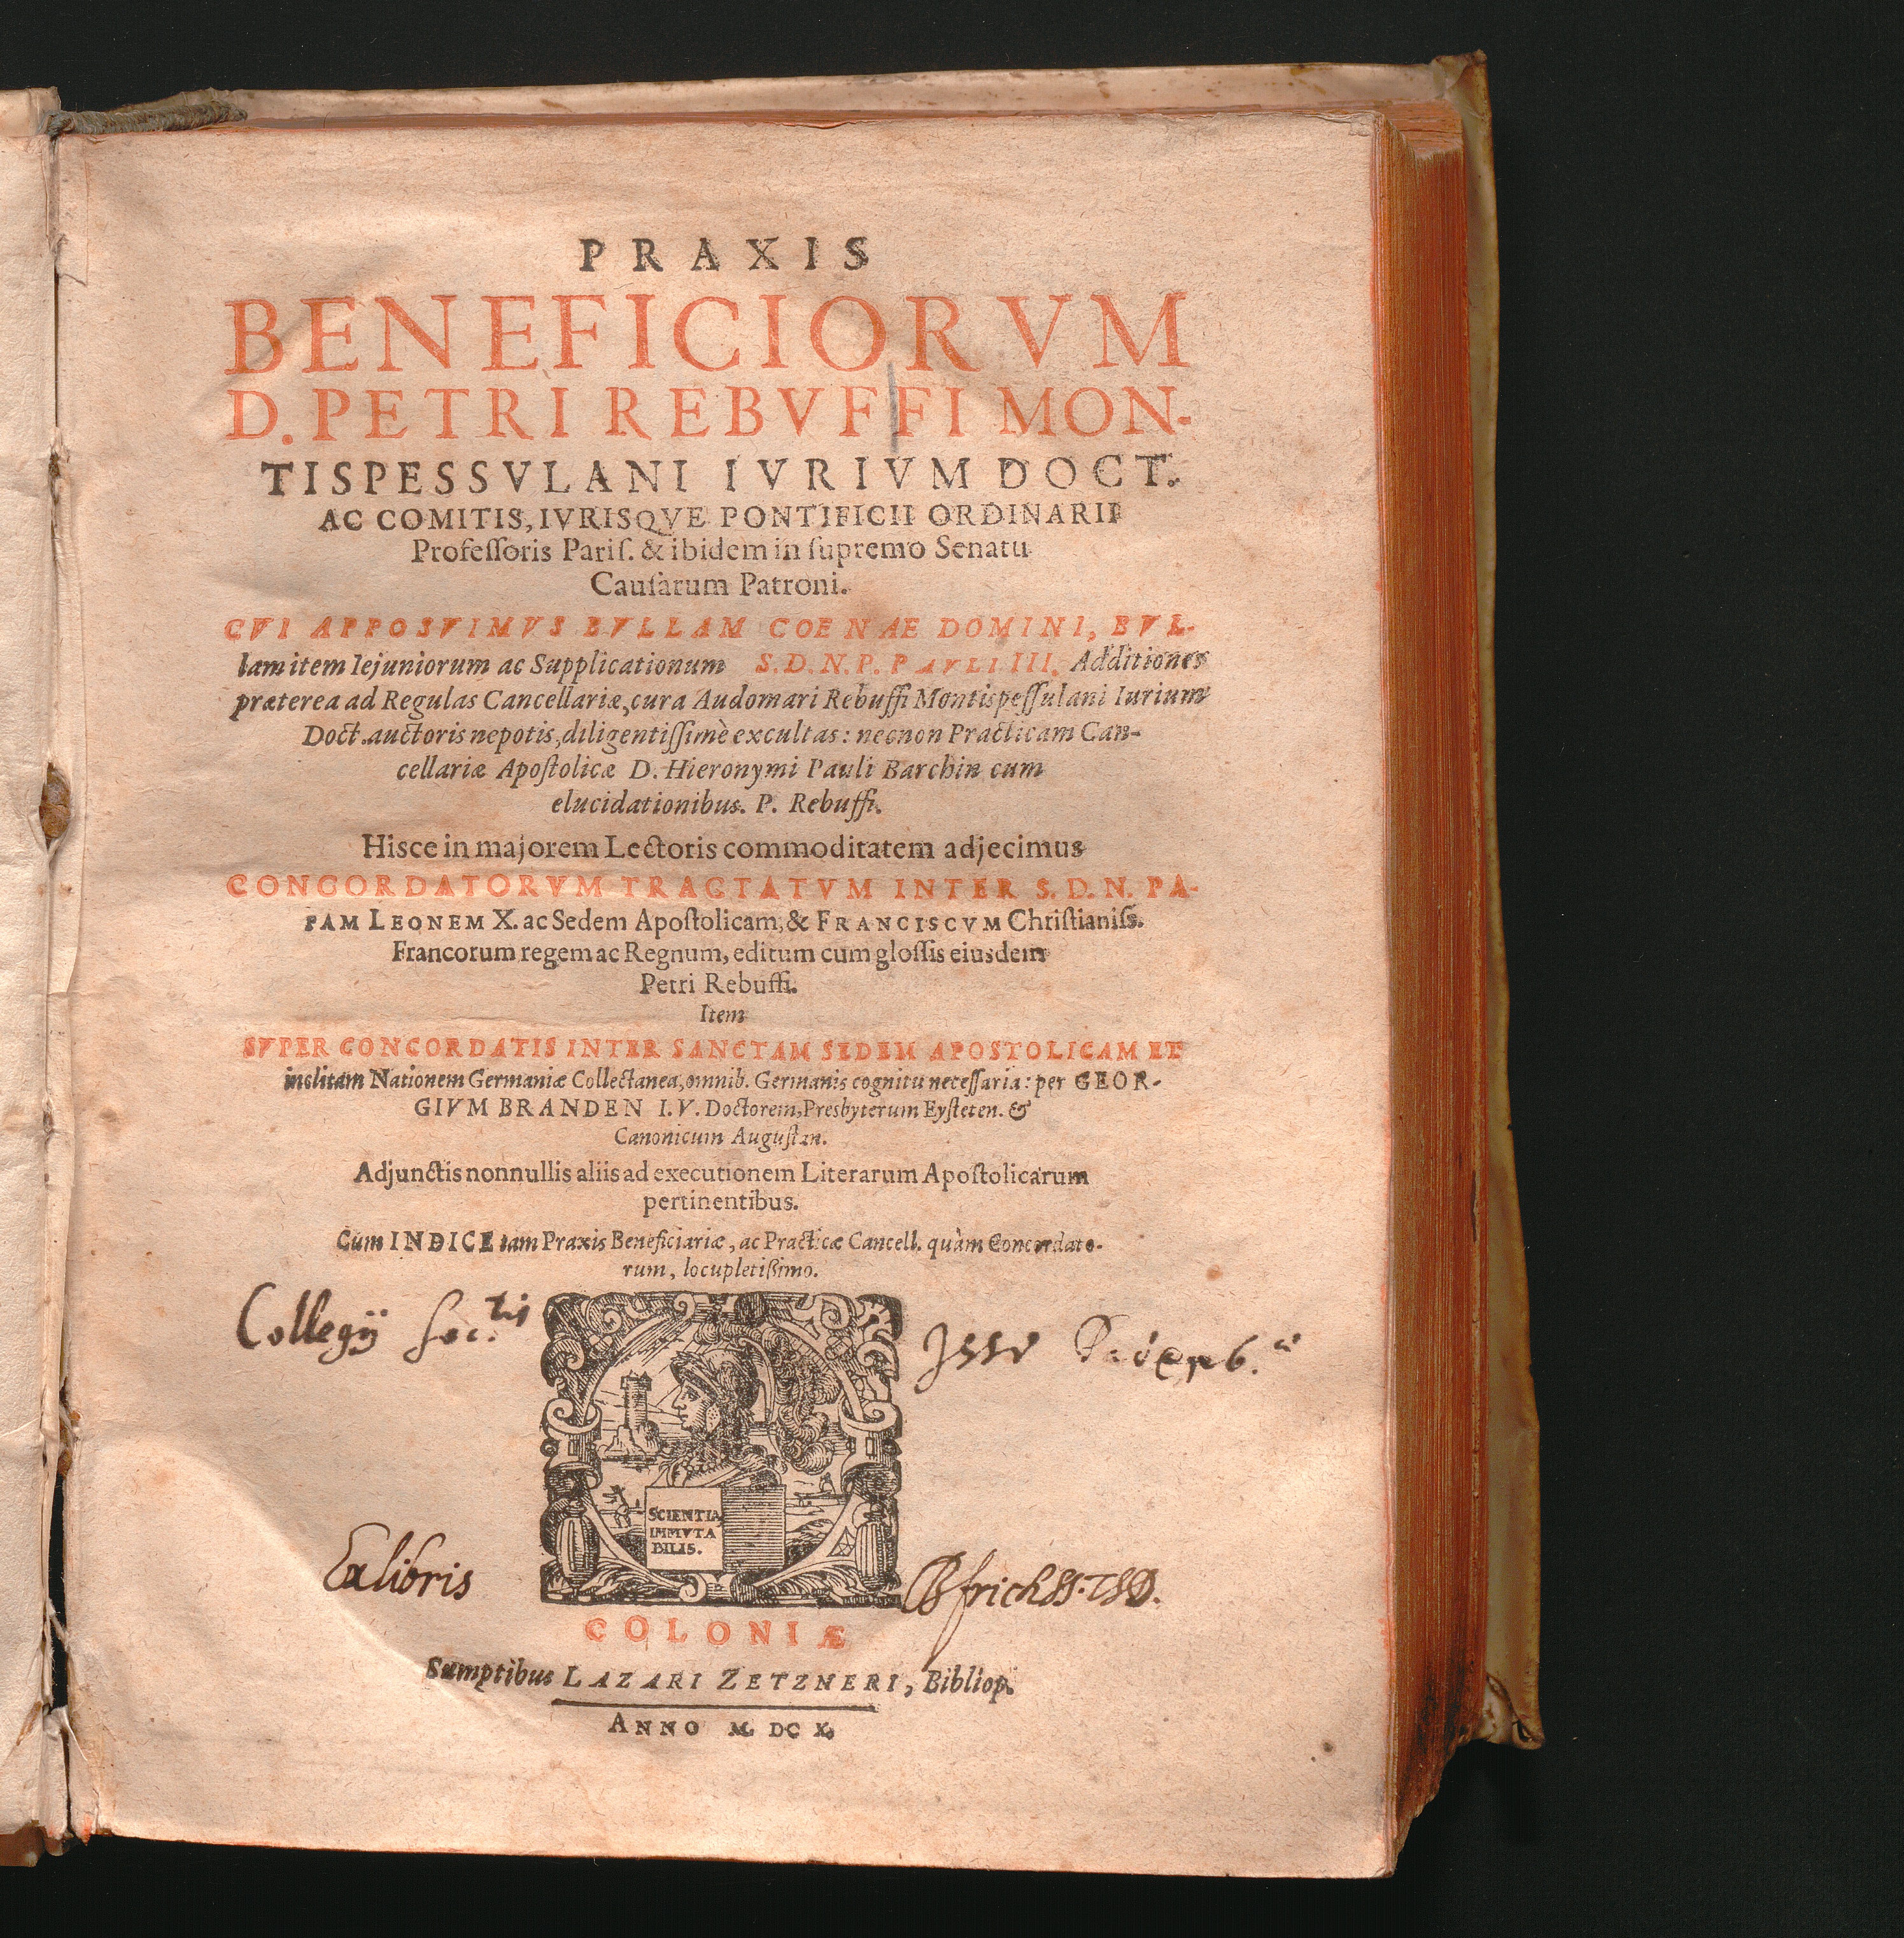 PRAXIS
BENEFICIORVM
D. PETRI REBVFFI MON-
TISPESSVLANI IVRIVM DOCT.
AC COMITIS, IVRISQVE PONTIFICII ORDINARII
Profeſſoris Pariſ. & ibidem in ſupremo Senatu
Cauſarum Patroni.
CVI APPOSVIMVS BVLLAM COENAE DOMINI, BVL-
lam item Iejuniorum ac Supplicationum S. D. N. P. PAVLI III. Additiones
præterea ad Regulas Cancellariæ, cura Audomari Rebuffi Montispeſſulani Iurium
Doct. auctoris nepotis, diligentiſſimè excultas: necnon Practicam Can-
cellariæ Apoſtolicæ D. Hieronymi Pauli Barchin cum
elucidationibus. P. Rebuffi.
Hisce in majorem Lectoris commoditatem adjecimus
CONCORDATORVM TRACTATVM INTER S. D. N. PA-
PAM LEONEM X. ac Sedem Apoſtolicam, & FRANCISCVM Chriſtianiſs.
Francorum regem ac Regnum, editum cum gloſſis eiusdem
Petri Rebuffi.
Item
SVPER CONCORDATIS INTER SANCTAM SEDEM APOSTOLICAM ET
inclitam Nationem Germaniæ Collectanea, omnib. Germanis cognitu neceſſaria: per GEOR-
GIVM BRANDEN I. V. Doctorem, Presbyterum Eyſteten. &
Canonicum Auguſtan.
Adjunctis nonnullis aliis ad executionem Literarum Apoſtolicarum
pertinentibus.
Cum INDICE tam Praxis Beneficiariæ, ac Practicæ Cancell. quàm Concordato-
rum, locupletißimo.
Collegÿ Soc.tis
SCIENTIA
IMMVTA
BILIS.
Ex libris
COLONIÆ
Sumptibus LAZARI ZETZNERI, Bibliop.
ANNO M. DC X.